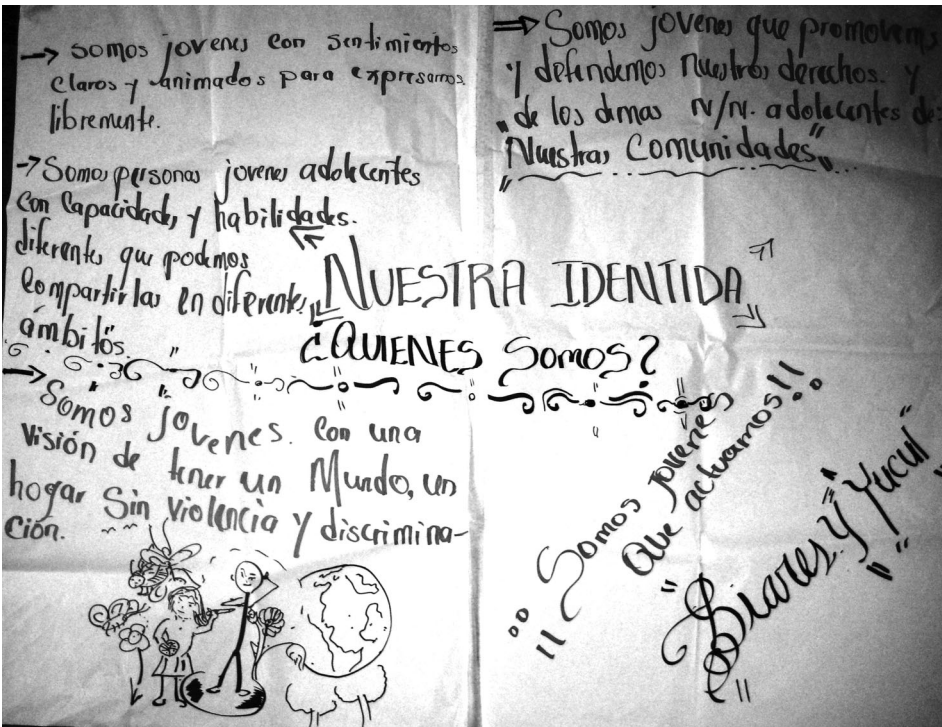 → somos jovenes con sentimientos
claros y animados para expresarnos.
libremente.
→ Somos personas jovenes adolecentes
con Capacidades y habilidades.
diferentes que podemos
compartirlas en diferentes
ámbitos.
⇒ Somos jovenes que promovemos
y defendemos nuestros derechos. y
de los demas N/N. adolecentes de
"Nuestras Comunidades"
NUESTRA IDENTIDA
¿QUIENES Somos?
→ Somos jovenes. Con una
visión de tener un Mundo, un
hogar Sin violencia y discrimina-
ción.
¡¡ Somos jovenes
Que actuamos!!